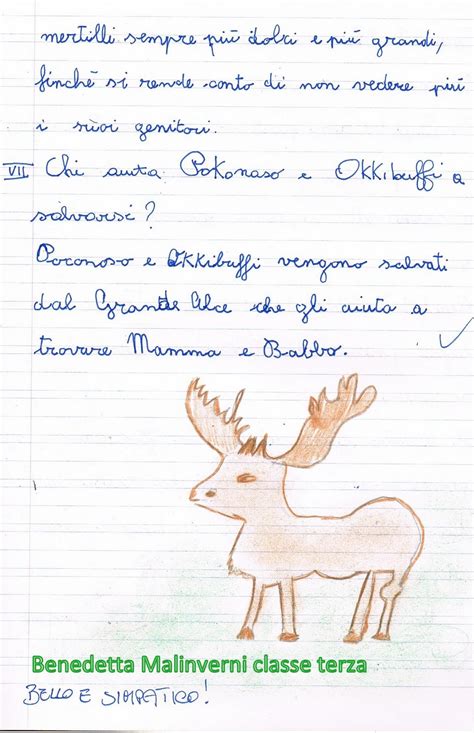 mertilli sempre più dolci e più grandi,
finché si rende conto di non vedere più
i suoi genitori.
VII Chi aiuta Pokonaso e Okkibuffi a
salvarsi?
Poconoso e Okkibuffi vengono salvati
dal Grande Alce che gli aiuta a
trovare Mamma e Babbo.
Benedetta Malinverni classe terza
BELLO E SIMPATICO!